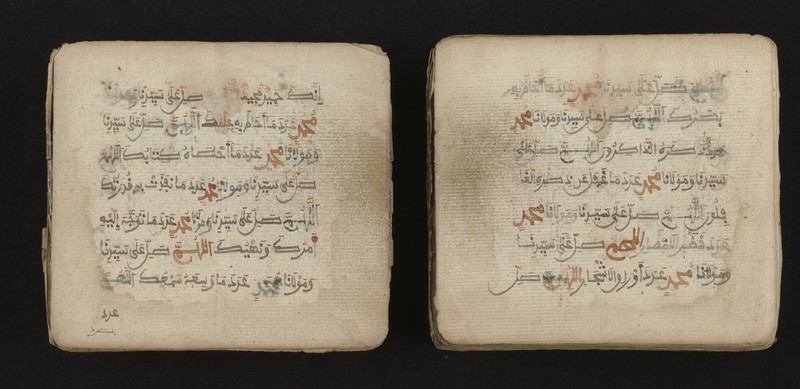 إنك حميد مجيد صل على سيدنا ومولانا
محمد عدد ما أحاط به علمك اللهم صل على سيدنا
ومولانا محمد عدد ما أحصاه كتابك اللهم
صل على سيدنا ومولانا محمد عدد ما نفذت به قدرتك
اللهم صل على سيدنا ومولانا محمد عدد ما توجه إليه
أمرك ونهيك اللهم صل على سيدنا
ومولانا محمد عدد ما وسعه سمعك اللهم
عدد
اللهم صل على سيدنا محمد عدد ما أحاط به
بصرك اللهم صل على سيدنا ومولانا محمد
عدد ذكره الذاكرون اللهم صل على
سيدنا ومولانا محمد عدد ما غفل عن ذكره الغا
فلون اللهم صل على سيدنا ومولانا محمد
عدد قطر الأمطار اللهم صل على سيدنا
ومولانا محمد عدد أوراق الأشجار اللهم صل